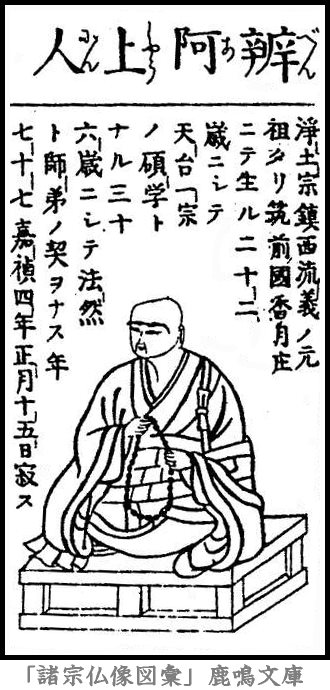 辨阿上人
べん あ
淨土宗鎮西流義ノ元
祖タリ筑前國香月庄
ニテ生ル二十二
歳ニシテ
天台一宗
ノ碩学ト
ナル三十
六歳ニシテ法然
ト師弟ノ契ヲナス年
七十七嘉禎四年正月十五日寂ス
「諸宗仏像図彙」鹿鳴文庫